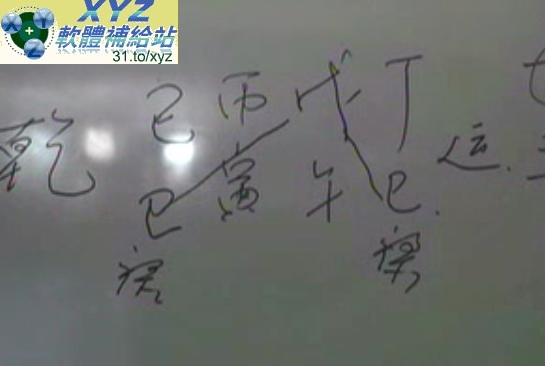 XYZ
軟體補給站
31.to/xyz
己 丙 戊 丁
乾
巳 寅 午 巳 运
禄 禄